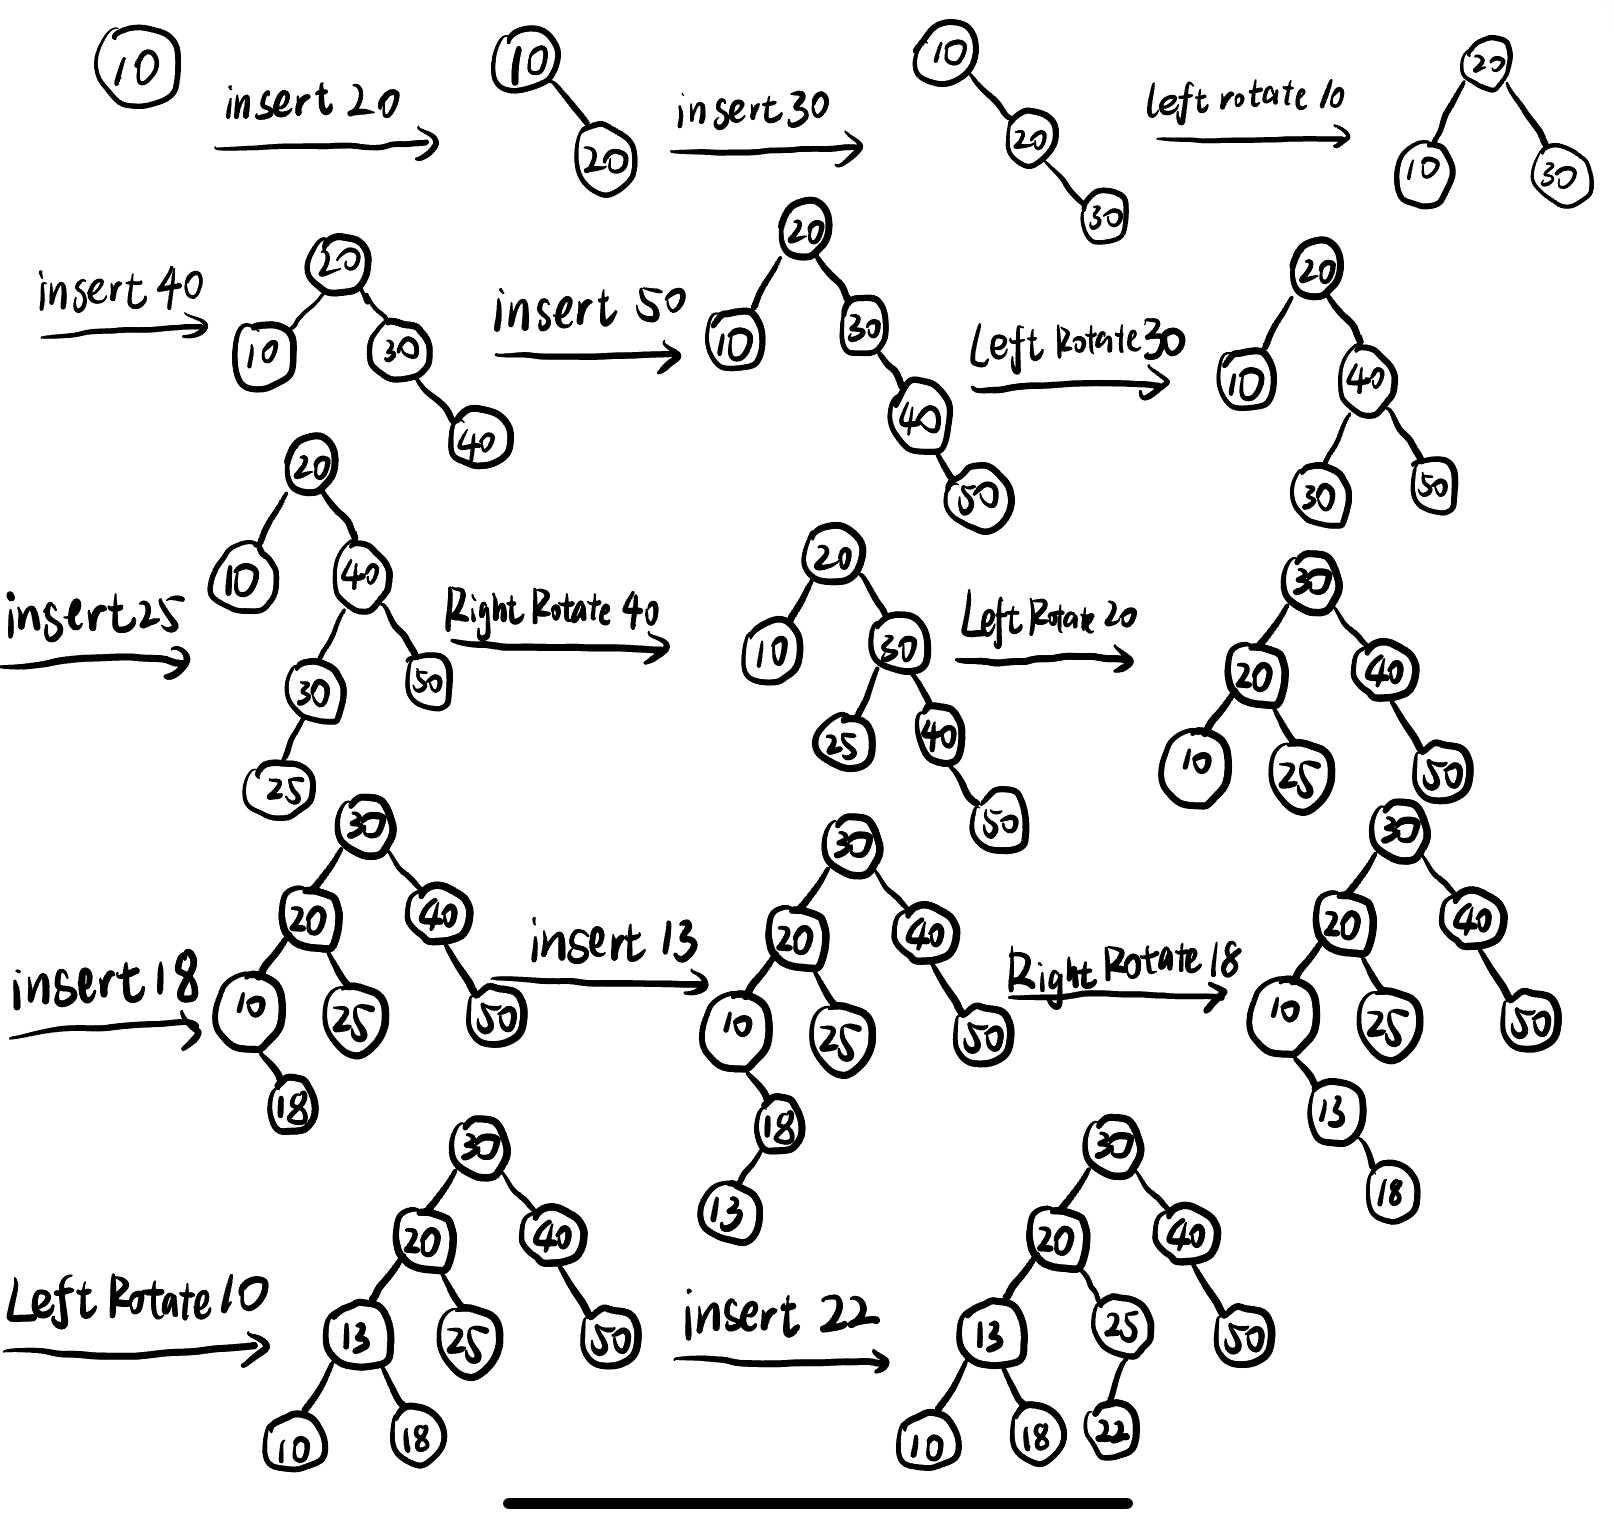 10 insert 20 10 20 insert 30 10 20 30 left rotate 10 20 10 30
insert 40 20 10 30 40 insert 50 20 10 30 40 50 Left Rotate 30 20 10 40 30 50
insert 25 20 10 40 30 50 25 Right Rotate 40 20 10 30 25 40 50 Left Rotate 20 30 20 40 10 25 50
insert 18 30 20 40 10 25 50 18 insert 13 30 20 40 10 25 50 18 13 Right Rotate 18 30 20 40 10 25 50 13 18
Left Rotate 10 30 20 40 13 25 50 10 18 insert 22 30 20 40 13 25 50 10 18 22